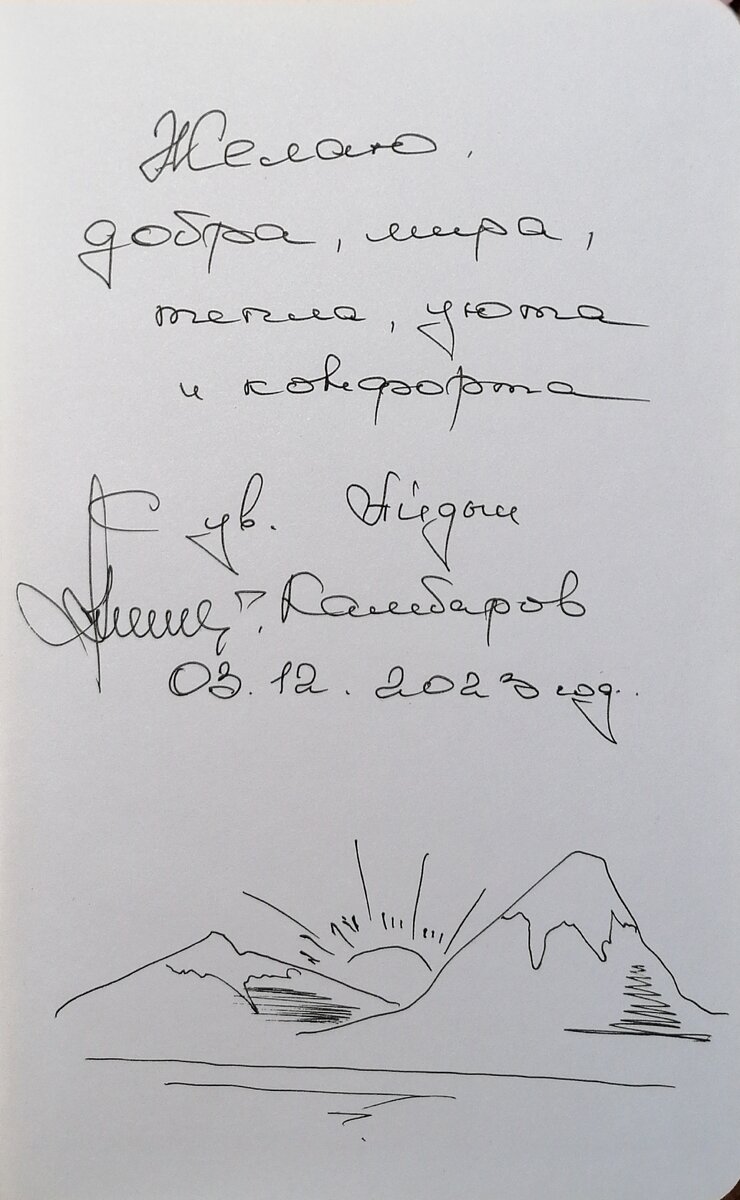 Желаю
добра, мира,
тепла, уюта
и комфорта
С ув.
Камбаров
03.12.2023 год.